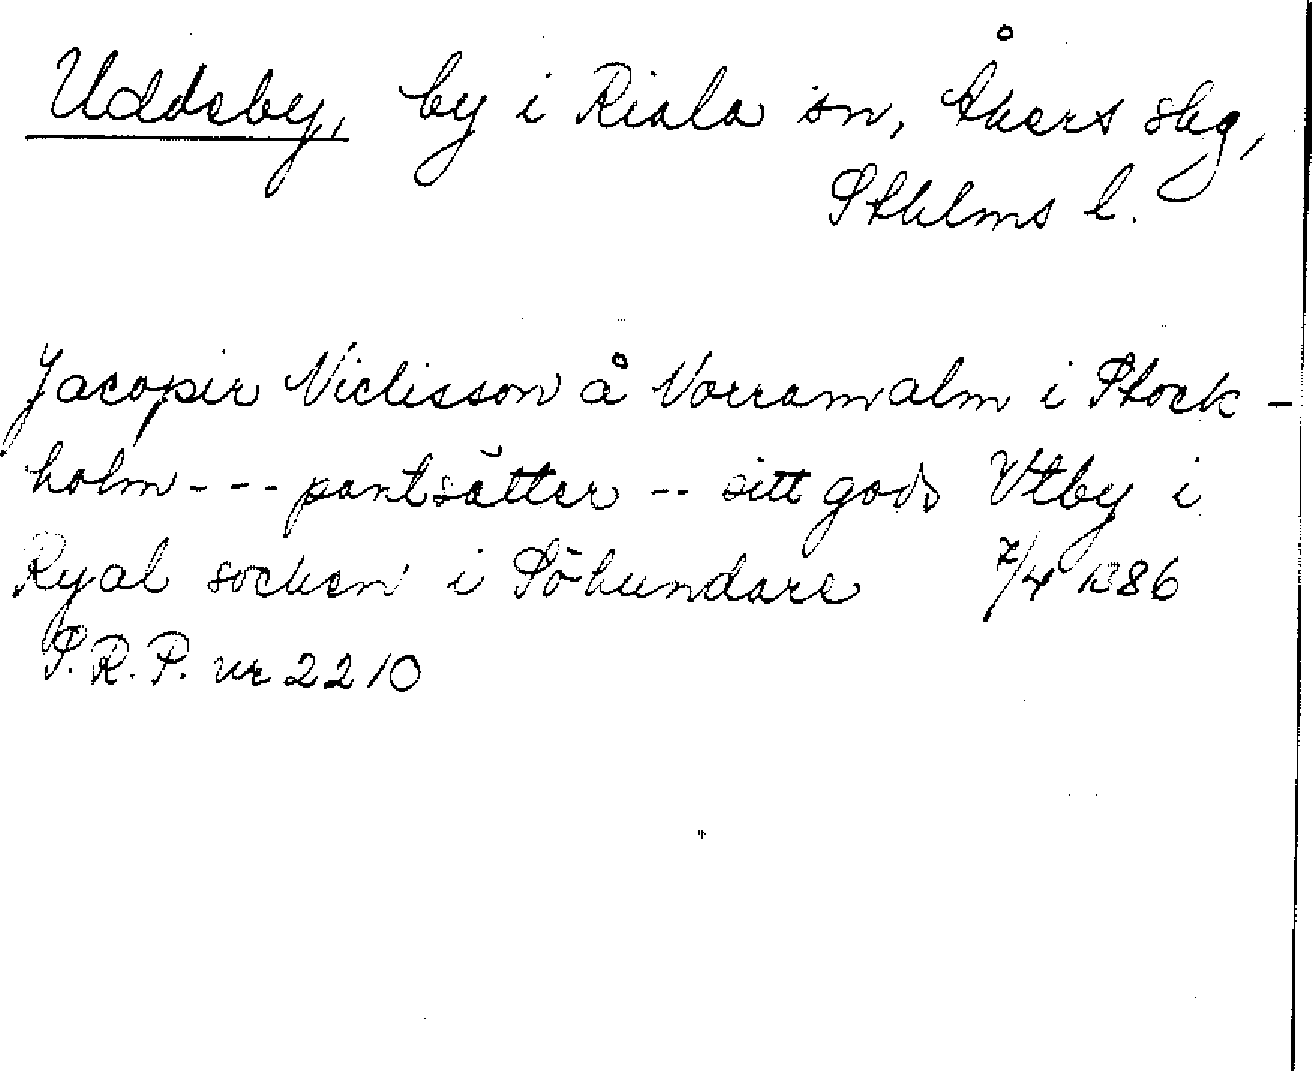 Uddeby, by i Riala sn, Åkers skg,
Sthlms l.
Jacopir Niclisson å Norramalm i Stock-
holm - - - pantsätter - - sitt gods Vtby i
Ryal socken i Söhundare 7/4 1386
S.R.P. nr 2210